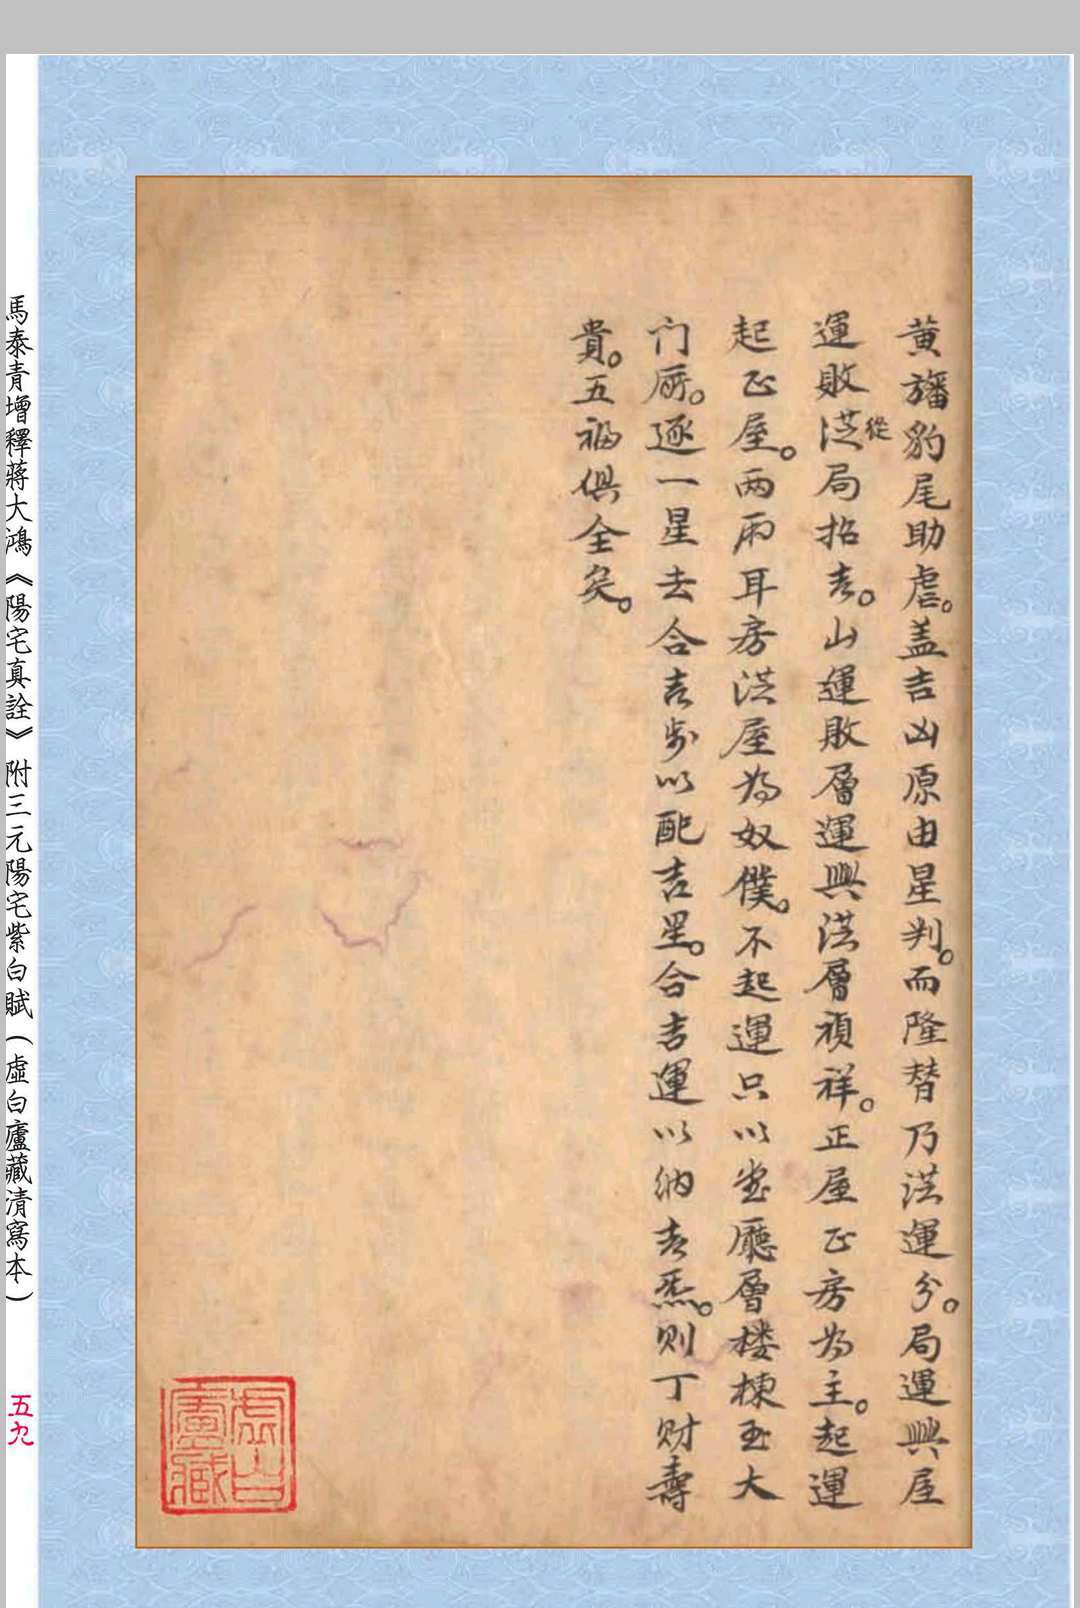 黄旛豹尾助虐。盖吉凶原由星判。而隆替乃洪運分。局運興屋
運敗洪從局招吉。山運敗層運興洪層禎祥。正屋正房为主。起運
起正屋。两雨耳房洪屋为奴僕。不起運只以堂廳層楼棟至大
门厨。逐一星去合吉步以配吉星。合吉運以纳吉炁。则丁财壽
貴。五福俱全矣。
虛白廬藏
馬泰青增釋蔣大鴻《陽宅真詮》附三元陽宅紫白賦（虛白廬藏清寫本）
五九